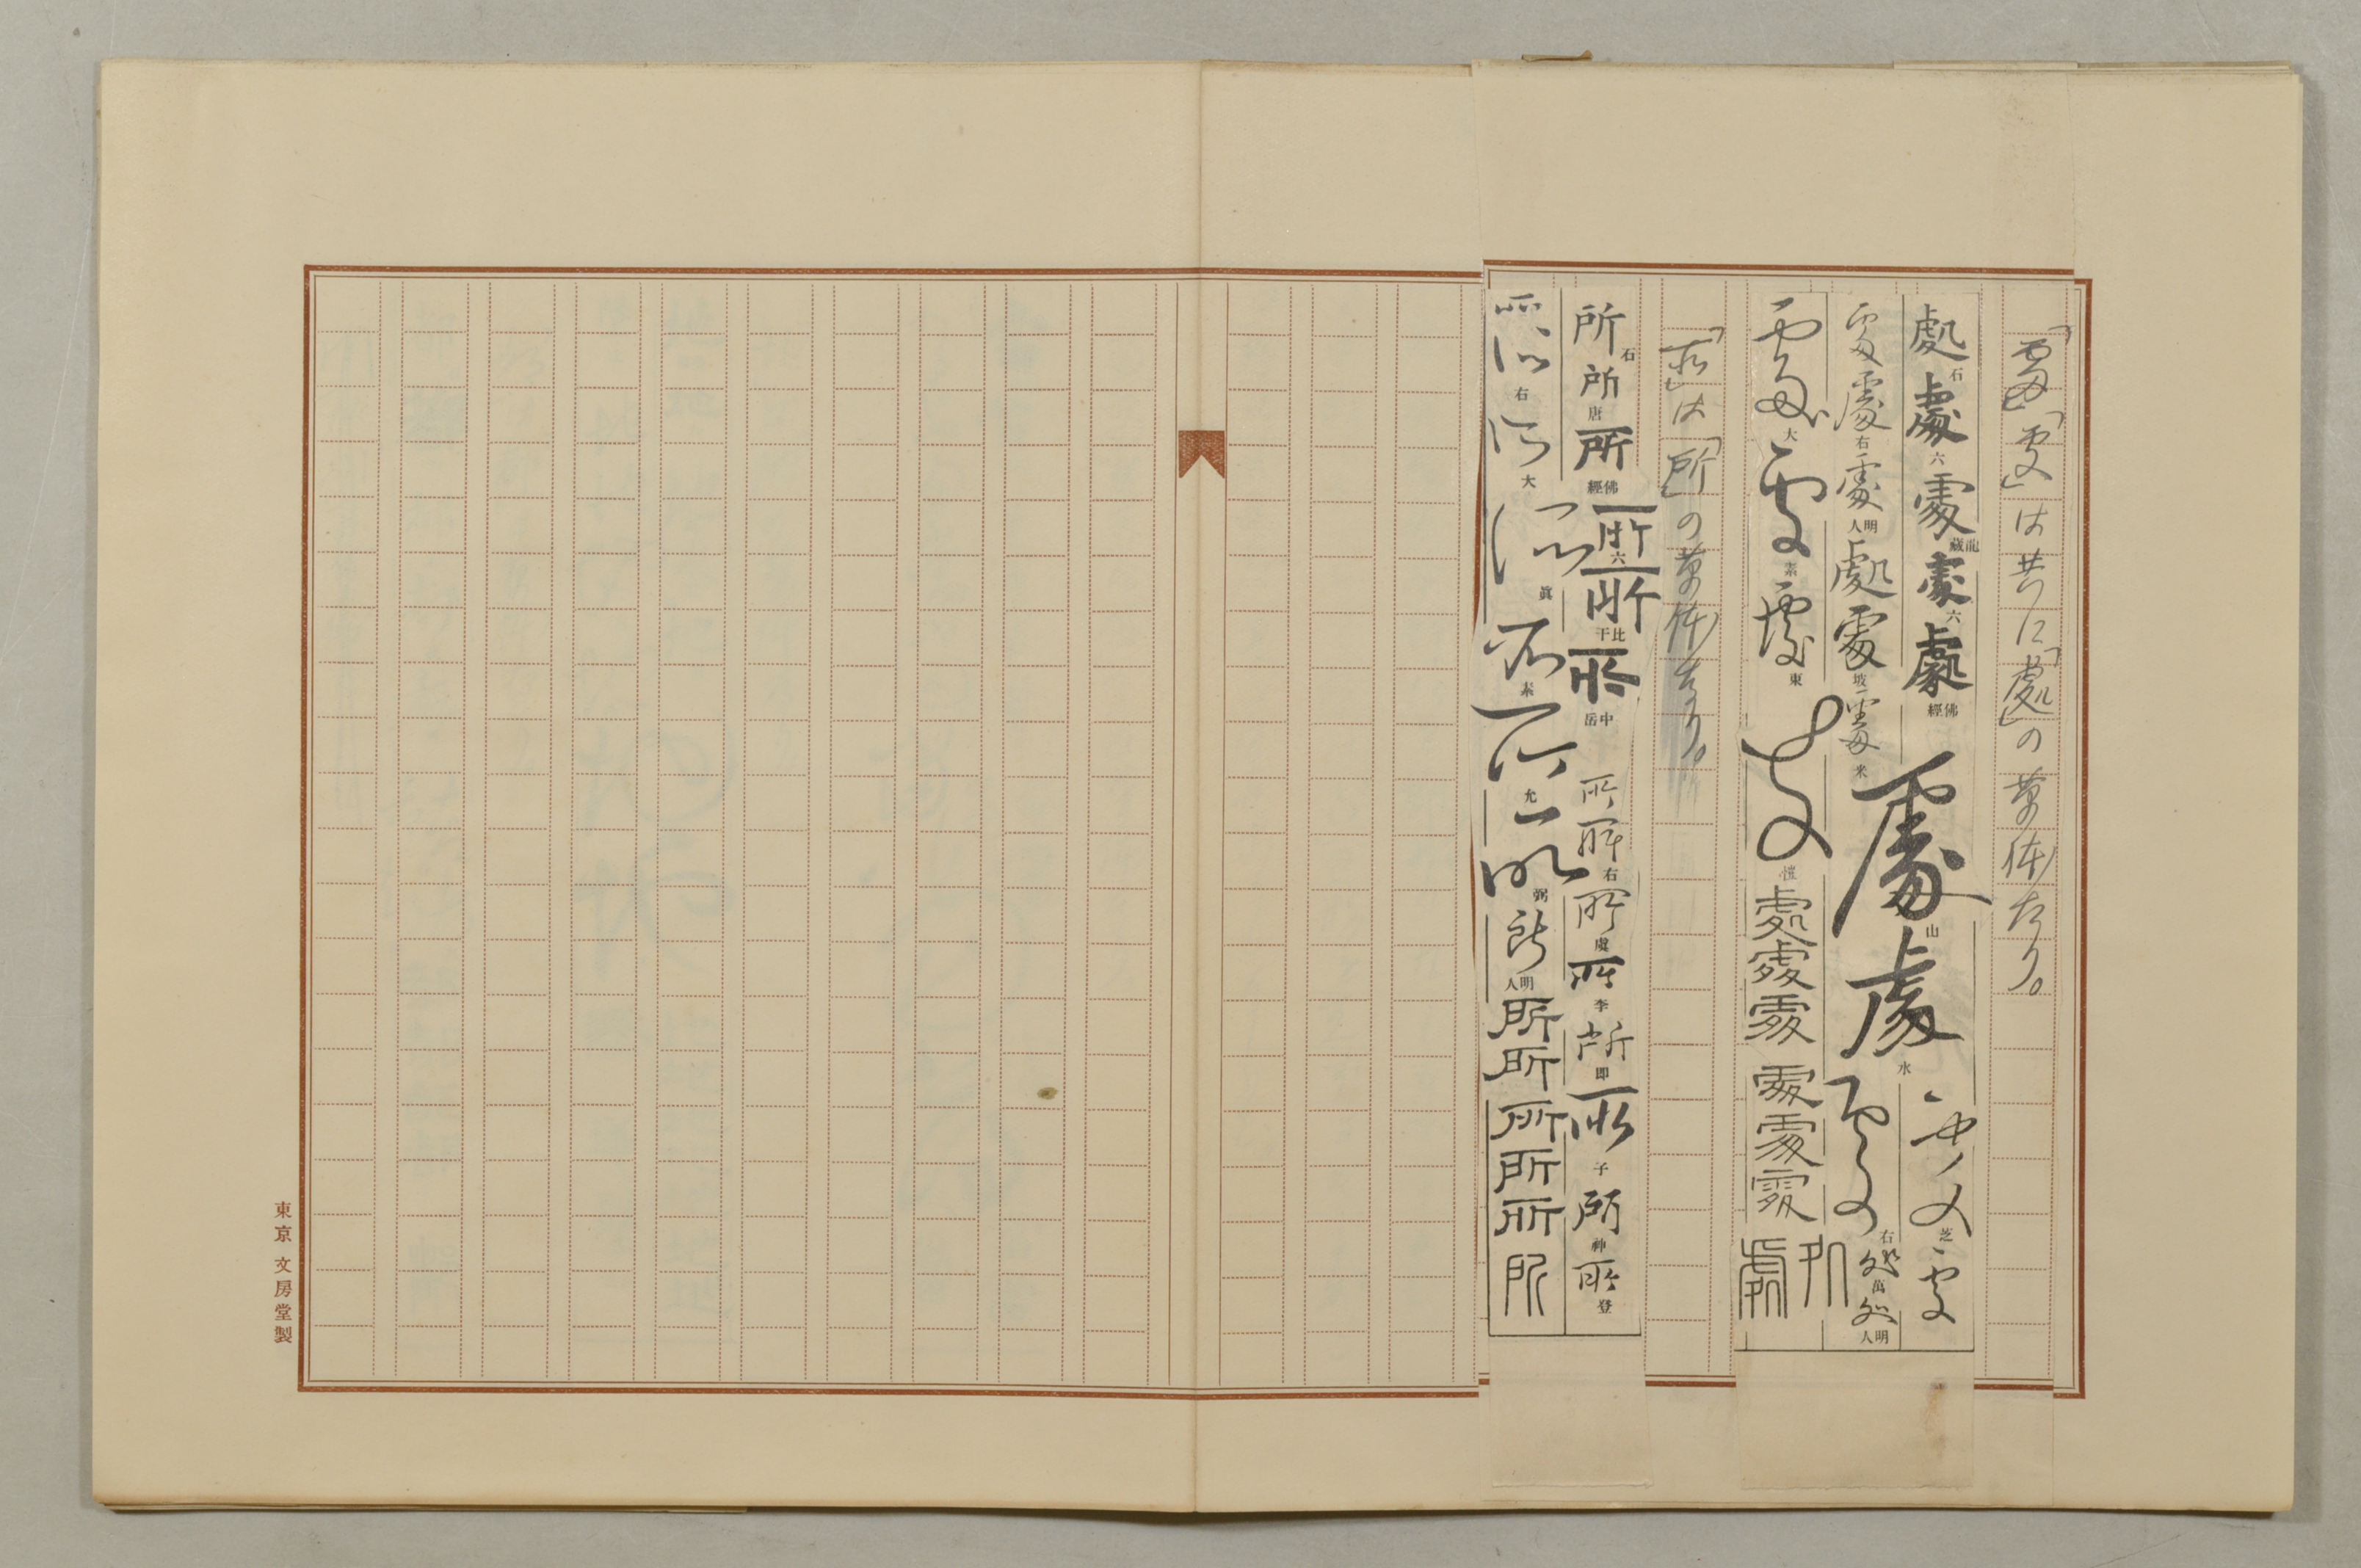 「䖏」「处」は共に「處」の草体なり。
處 石 處 六 處 龍藏 處 六 處 佛經 處 山 處 水 處 芝 處
處 處 右 處 明人 處 處 坡 處 米 處 右 処 萬 処 明人
處 大 處 素 處 東 處 懷 處 處 處 處 處 處 処 處
「所」は「所」の草体なり。
所 石 所 唐 所 佛經 所 六 所 比干 所 中岳 所 所 右 所 虞 所 李 所 即 所 子 所 神 所 登
所 所 右 所 大 所 眞 所 素 所 允 所 弼 所 明人 所 所 所 所 所 所
東京 文房堂製